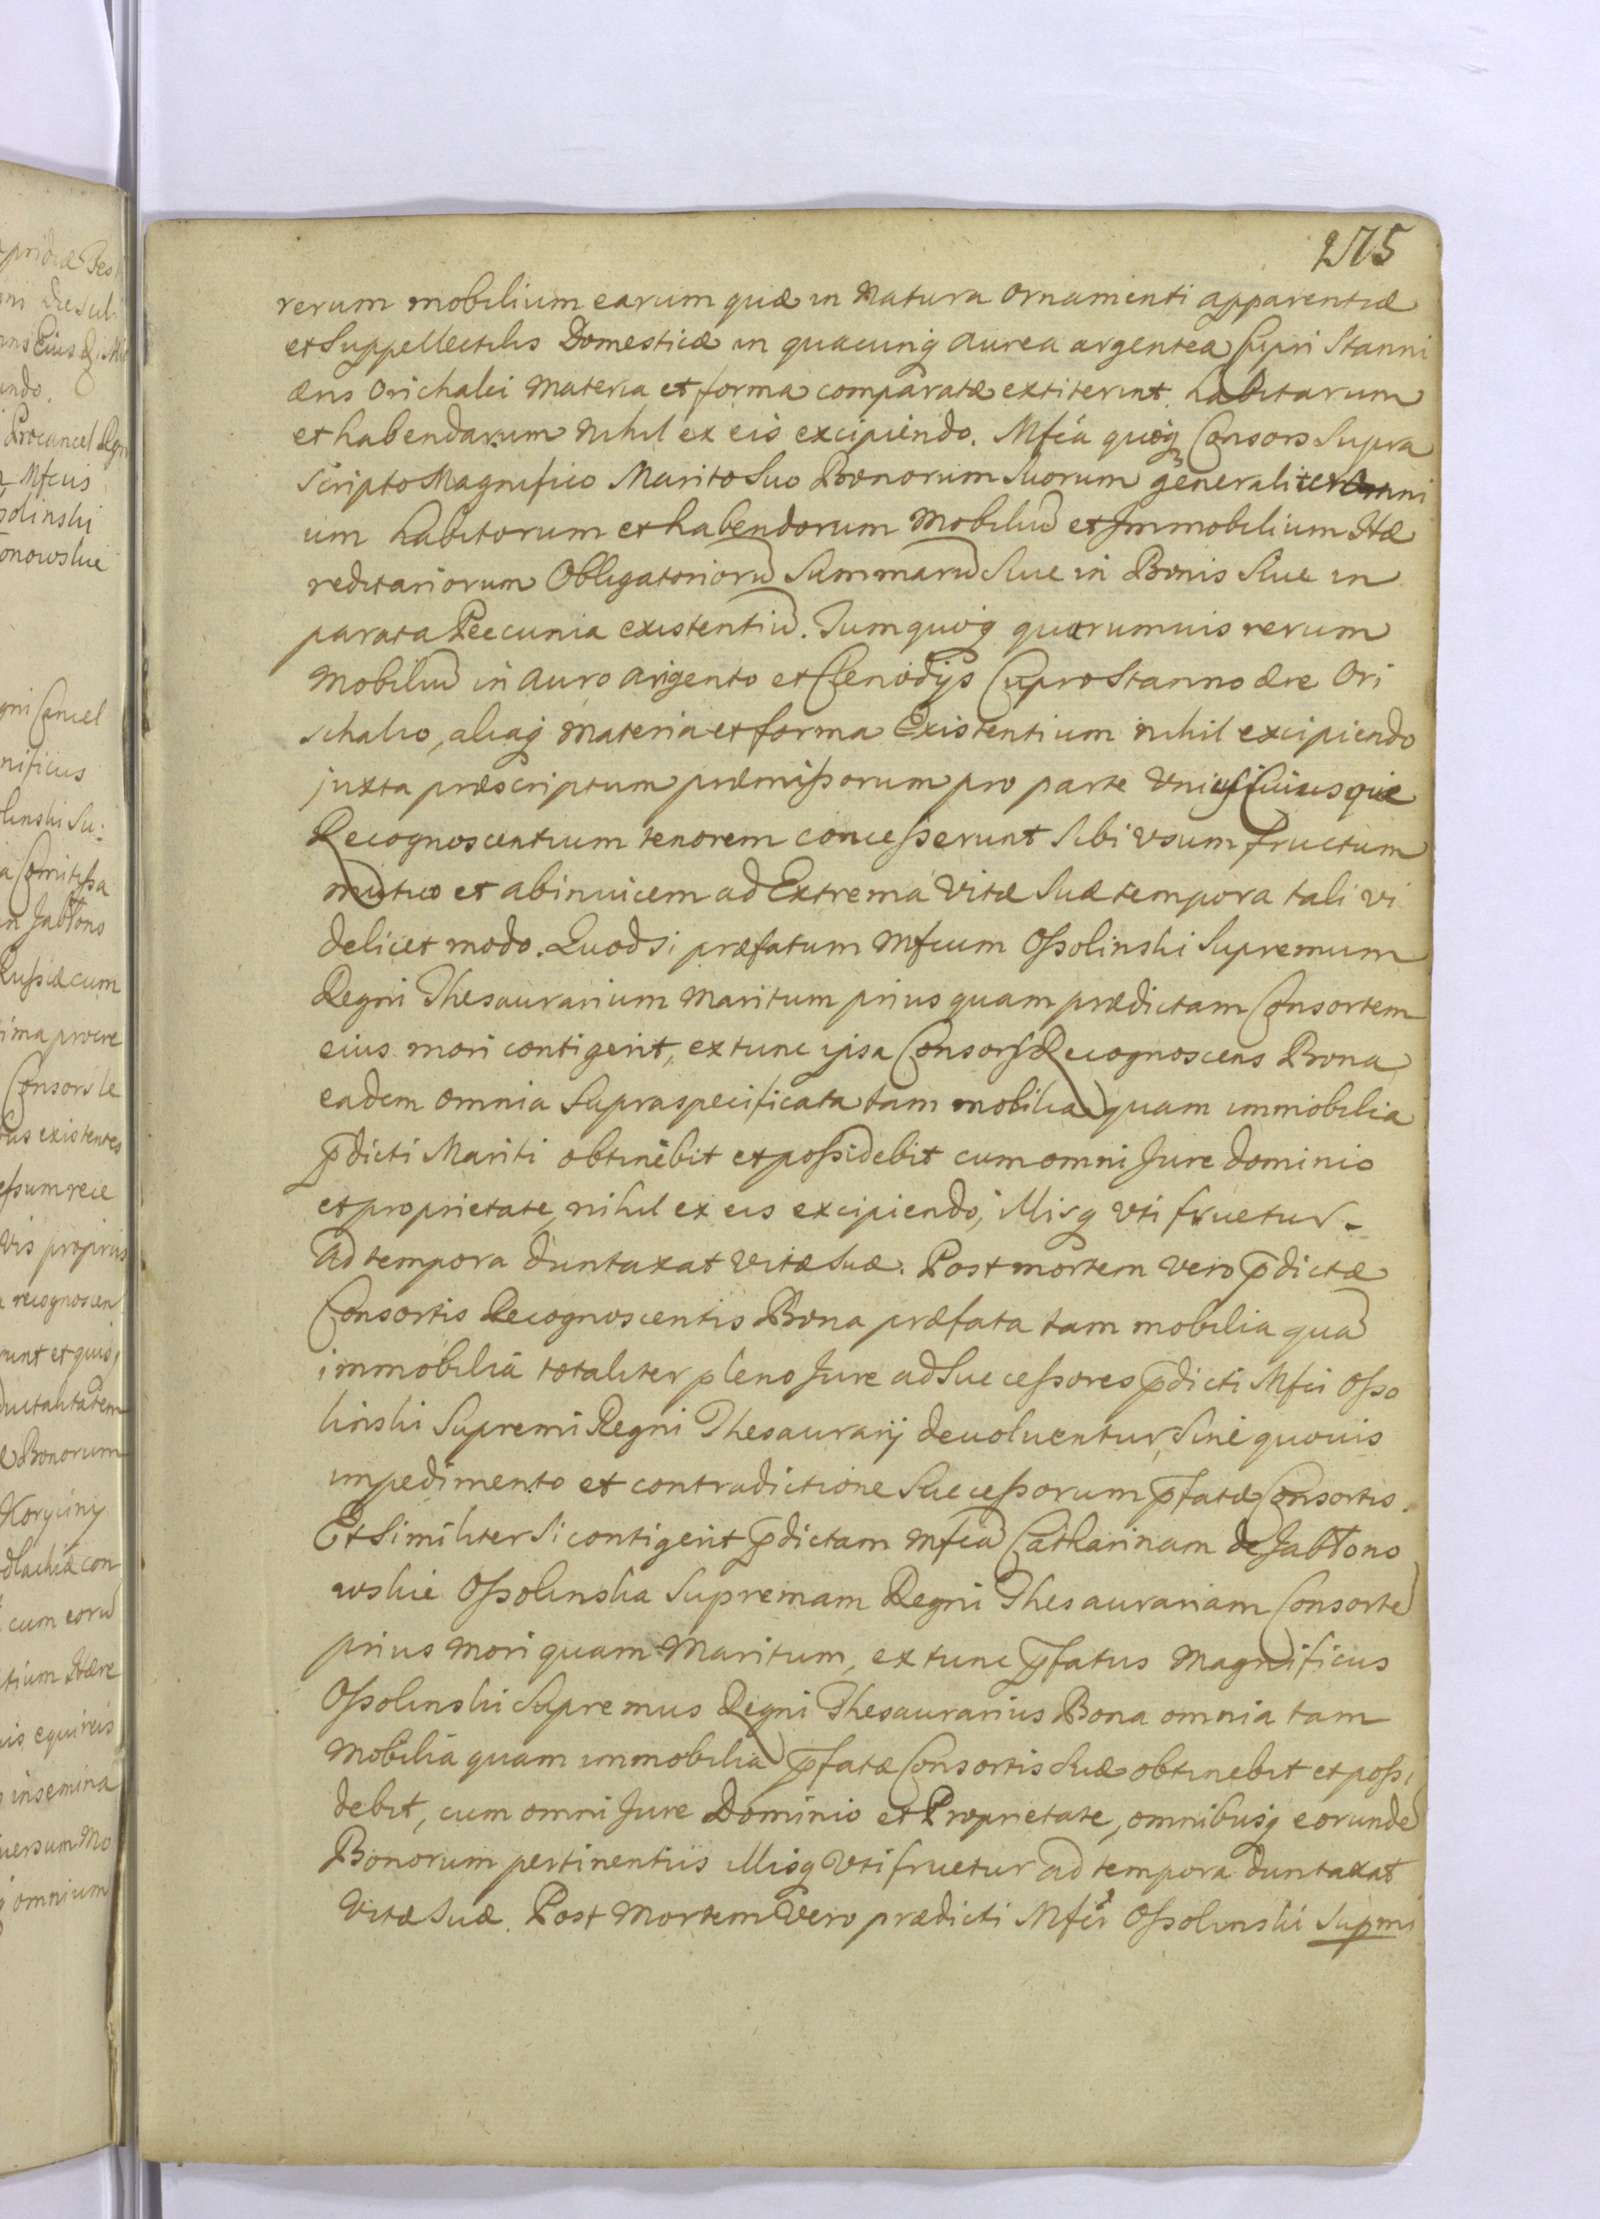 275
rerum mobilium earum quæ in Natura Ornamenti apparentiæ
et Suppellectilis Domesticæ in quacunq aurea argentea Cupri Stanni
æris Orichalci Materia et forma comparatæ extiterint habitarum
et habendarum Nihil ex eis excipiendo. Mfca quoq Consors Supra
Scripto Magnifico Marito Suo Bonorum Suorum generaliter Omni
um habitorum et habendorum Mobiliū et Immobilium Hæ
reditariorum Obligatoriorū Summarū Siue in Bonis Siue in
parata Peecunia existentiū. Tum quoq quarumuis rerum
Mobiliū in Auro Argento et Clenodÿs Cupro Stanno ære Ori
chalco, aliaq Materia et forma Existentium nihil excipiendo
juxta præscriptum præmissorum pro parte Vniuscuiusque
Recognoscentium tenorem concesserunt Sibi vsum fructum
mutuo et abinuicem ad Extrema Vitæ Suæ tempora tali vi
delicet modo. Quod Si præfatum Mfcum Ossolinski Supremum
Regni Thesaurarium Maritum prius quam prædictam Consortem
eius mori contigerit, extunc ipsa Consors Recognoscens Bona
eadem omnia Supraspecificata tam mobilia quam immobilia
p̄dicti Mariti obtinebit et possidebit cum omni Jure dominio
et proprietate, nihil ex eis excipiendo, illisq vti fruetur
Ad tempora duntaxat Vitæ Suæ. Post mortem vero p̄dictæ
Consortis Recognoscentis Bona præfata tam mobilia quā
immobilia totaliter pleno Jure ad Successores p̄dicti Mfci Osso
linski Supremi Regni Thesaurarij deuoluentur, Sine quouis
impedimento et contradictione Successorum p̄fatæ Consortis.
Et Similiter Si contigerit p̄dictam Mfcā Catharinam de Jabłono
wskie Ossolinska Supremam Regni Thesaurariam Consortē
prius Mori quam Maritum, extunc p̄fatus Magnificus
Ossolinski Supremus Regni Thesaurarius Bona omnia tam
Mobilia quam immobilia p̄fatæ Consortis Suæ obtinebit et possi
debit, cum omni Jure Dominio et Proprietate, omnibusq eorundē
Bonorum pertinentiis illisq Vti fruetur ad tempora duntaxat
Vitæ Suæ. Post Mortem Vero prædicti Mfci Ossolinski Supmi